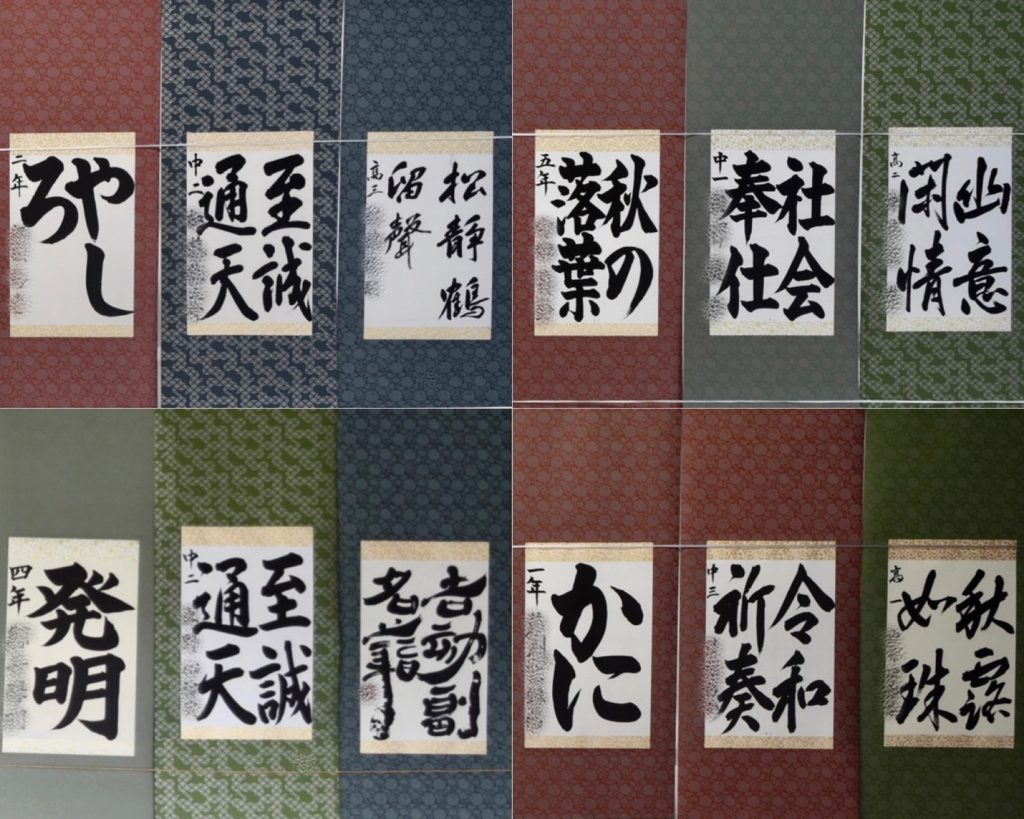 やし
ろ
二年
至誠
通天
中二
松静鶴
留聲
高三
秋の
落葉
五年
社会
奉仕
中一
幽意
閑情
高二
発明
四年
至誠
通天
中二
かに
一年
令和
祈奏
中三
秋露
如珠
高